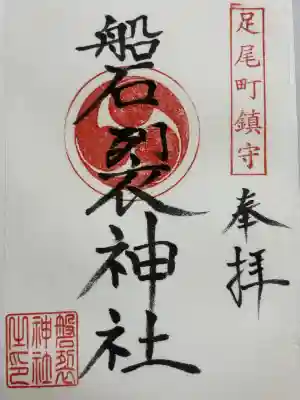 足尾町鎮守
奉拝
磐裂神社
磐裂
神社
之印